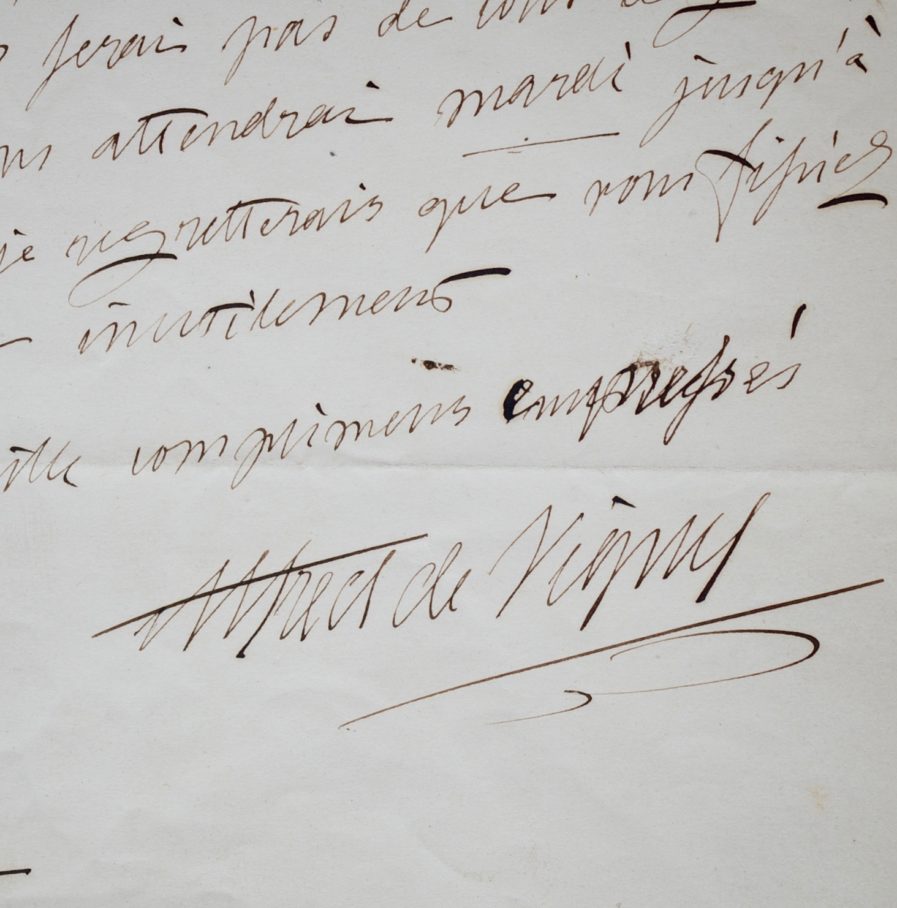 serais pas de
attendrai mardi jusqu'à
je regretterais que vous fissiez
inutilement
mille complimens empressés
Alfred de Vigny